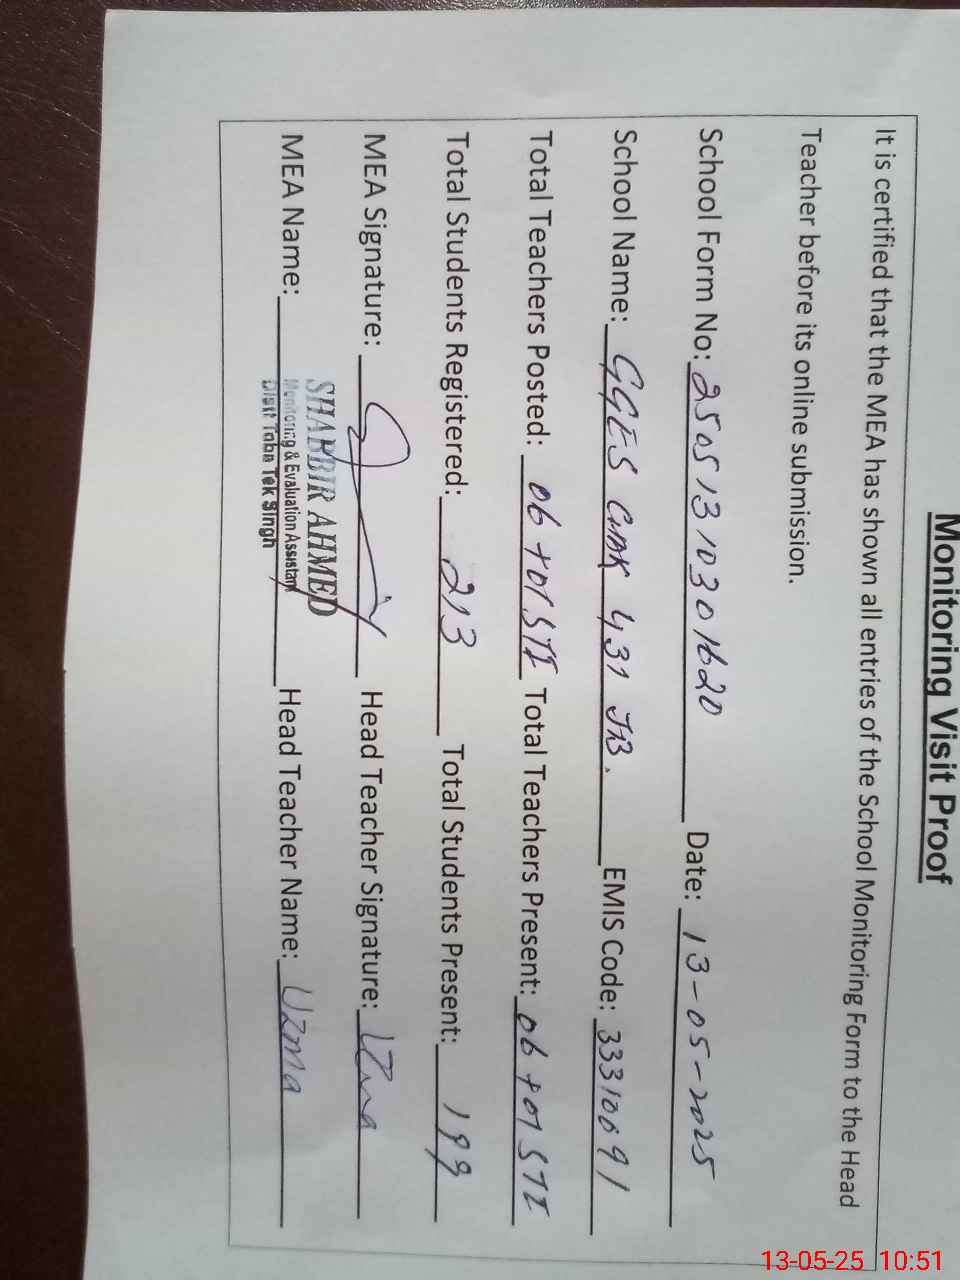 Monitoring Visit Proof
It is certified that the MEA has shown all entries of the School Monitoring Form to the Head
Teacher before its online submission.
School Form No: 2505131030 1620 Date: 13-05-2025
School Name: GGES CHAK 431 JB. EMIS Code: 33310091
Total Teachers Posted: 06 +01 STI Total Teachers Present: 06 +01 STI
Total Students Registered: 213 Total Students Present: 199
MEA Signature: Head Teacher Signature: Uzma
MEA Name: SHABBIR AHMED Head Teacher Name: Uzma
Monitoring & Evaluation Assistant
Distt Toba Tek Singh
13-05-25 10:51